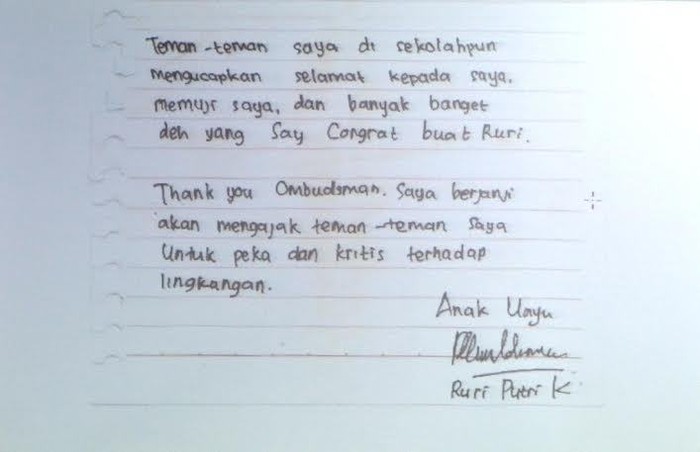 Teman-teman saya di sekolahpun
mengucapkan selamat kepada saya,
memuji saya, dan banyak banget
deh yang Say Congrat buat Ruri.
Thank you Ombudsman. Saya berjanji
akan mengajak teman-teman saya
Untuk peka dan kritis terhadap
lingkangan.
Anak Uayu
Ruri Putri K